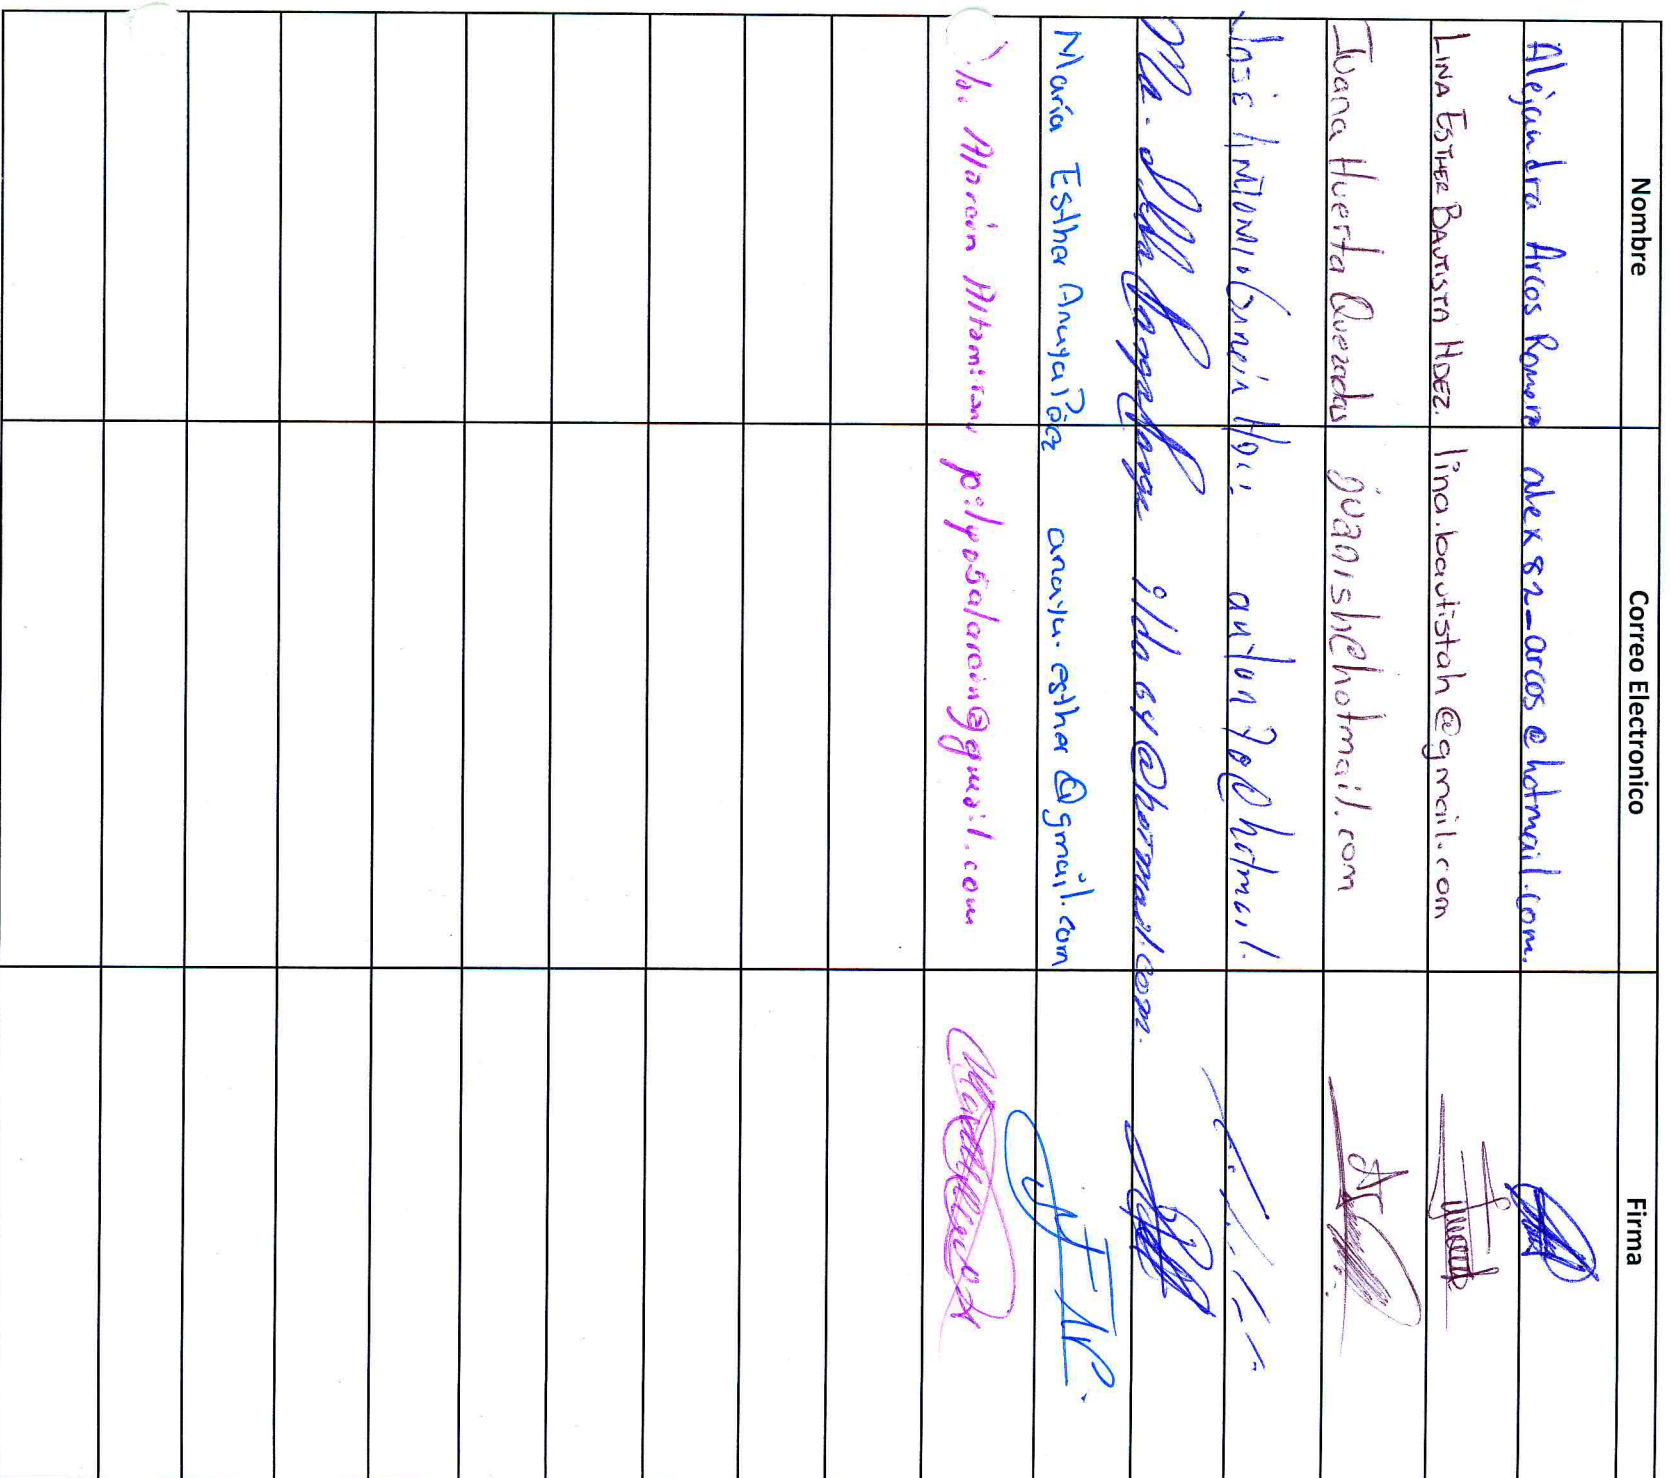 Nombre Correo Electronico Firma
Alejandra Arcos Romero alex82_arcos@hotmail.com.
LINA ESTHER BAUTISTA HDEZ. lina.bautistah@gmail.com
Juana Huerta Quezadas juanish@hotmail.com
José Antonio García anton70@hotmail.
Ma. Ilda ilda64@hotmail.com.
María Esther Anaya Páez anaya.esther@gmail.com
Alarcón Altamirano pilyposalarcon@gmail.com